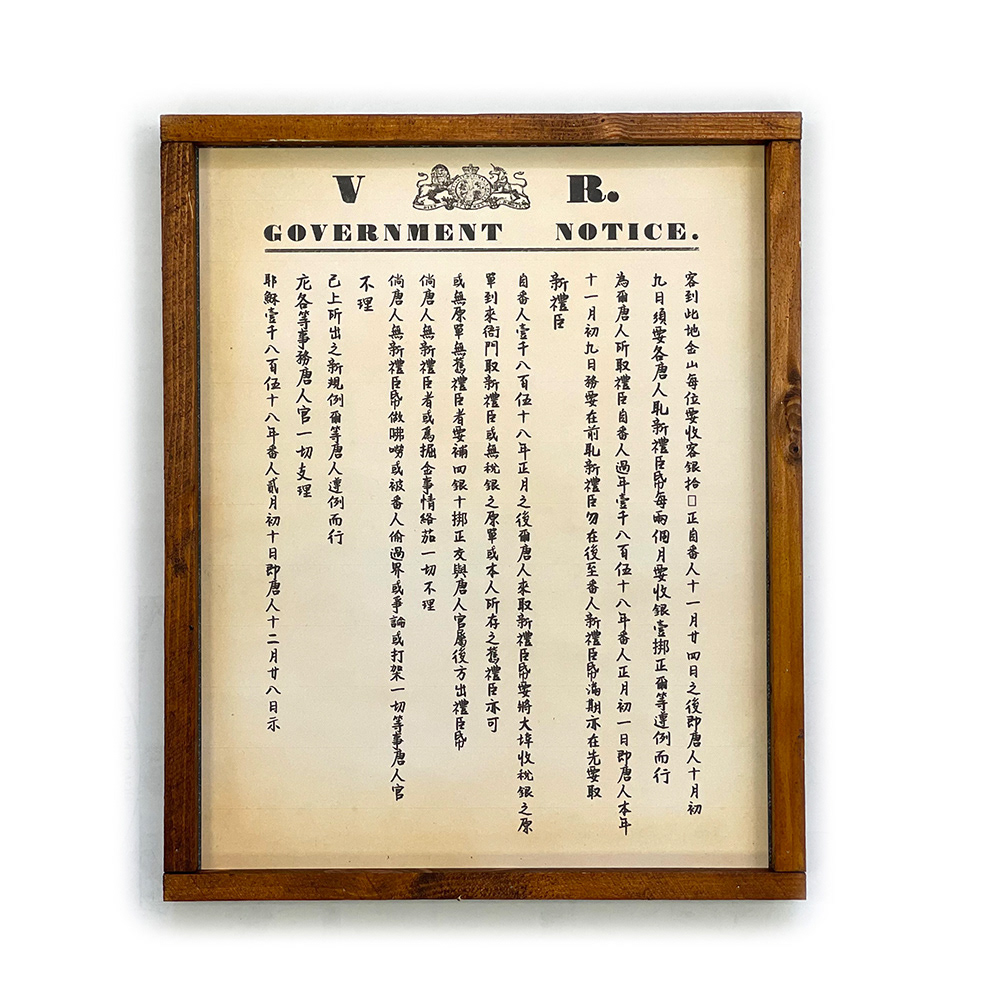 V R.
GOVERNMENT NOTICE.
客到此地金山每位要收客銀拾□正自番人十一月廿四日之後即唐人十月初
九日須要各唐人取新禮臣昂每兩個月要收銀壹挷正爾等遵例而行
為爾唐人所取禮臣自番人過年壹千八百伍十八年番人正月初一日即唐人本年
十一月初九日務要在前取新禮臣勿在後至番人新禮臣昂滿期亦在先要取
新禮臣
自番人壹千八百伍十八年正月之後爾唐人來取新禮臣昂要將大埠收稅銀之原
單到來衙門取新禮臣或無稅銀之原單或本人所存之舊禮臣亦可
或無原單無舊禮臣者要補回銀十挷正交與唐人官屬後方出禮臣昂
倘唐人無新禮臣者或為掘金事情絡茄一切不理
倘唐人無新禮臣昂做咈嘮或被番人偷過界或爭論或打架一切等事唐人官
不理
已上所出之新規例爾等唐人遵例而行
凡各等事務唐人官一切支理
耶穌壹千八百伍十八年番人貳月初十日即唐人十二月廿八日示